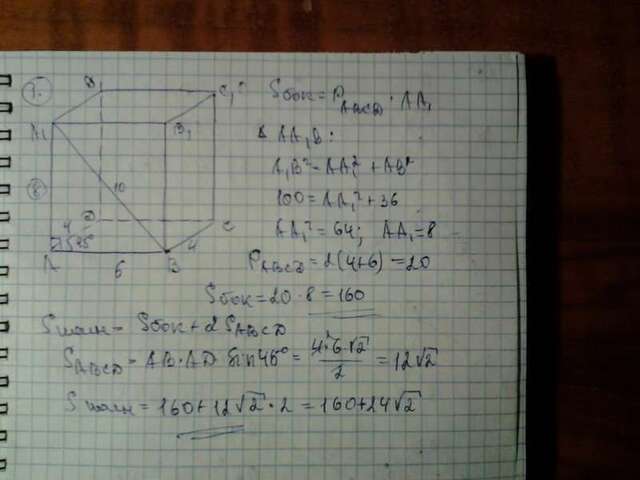 1.
D₁ C₁
A₁ B₁
8
10
4 D C
45°
A 6 B 4
Sбок = P_ABCD · AA₁
Δ AA₁B:
A₁B² = AA₁² + AB²
100 = AA₁² + 36
AA₁² = 64; AA₁ = 8
P_ABCD = 2(4+6) = 20
Sбок = 20 · 8 = 160
Sполн = Sбок + 2 S_ABCD
S_ABCD = AB · AD sin 45° = 4·6·√2 / 2 = 12√2
Sполн = 160 + 12√2 · 2 = 160 + 24√2